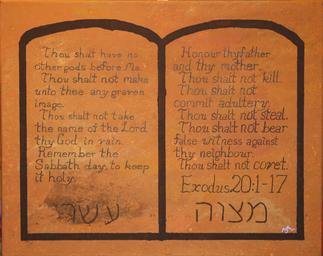 Thou shalt have no
other gods before Me.
Thou shalt not make
unto thee any graven
image.
Thou shalt not take
the name of the Lord
thy God in vain.
Remember the
Sabbath day, to keep
it holy.
עשרי
Honour thy father
and thy mother.
Thou shalt not kill.
Thou shalt not
commit adultery.
Thou shalt not steal.
Thou shalt not bear
false witness against
thy neighbour.
Thou shalt not covet.
Exodus 20:1-17
מצוה